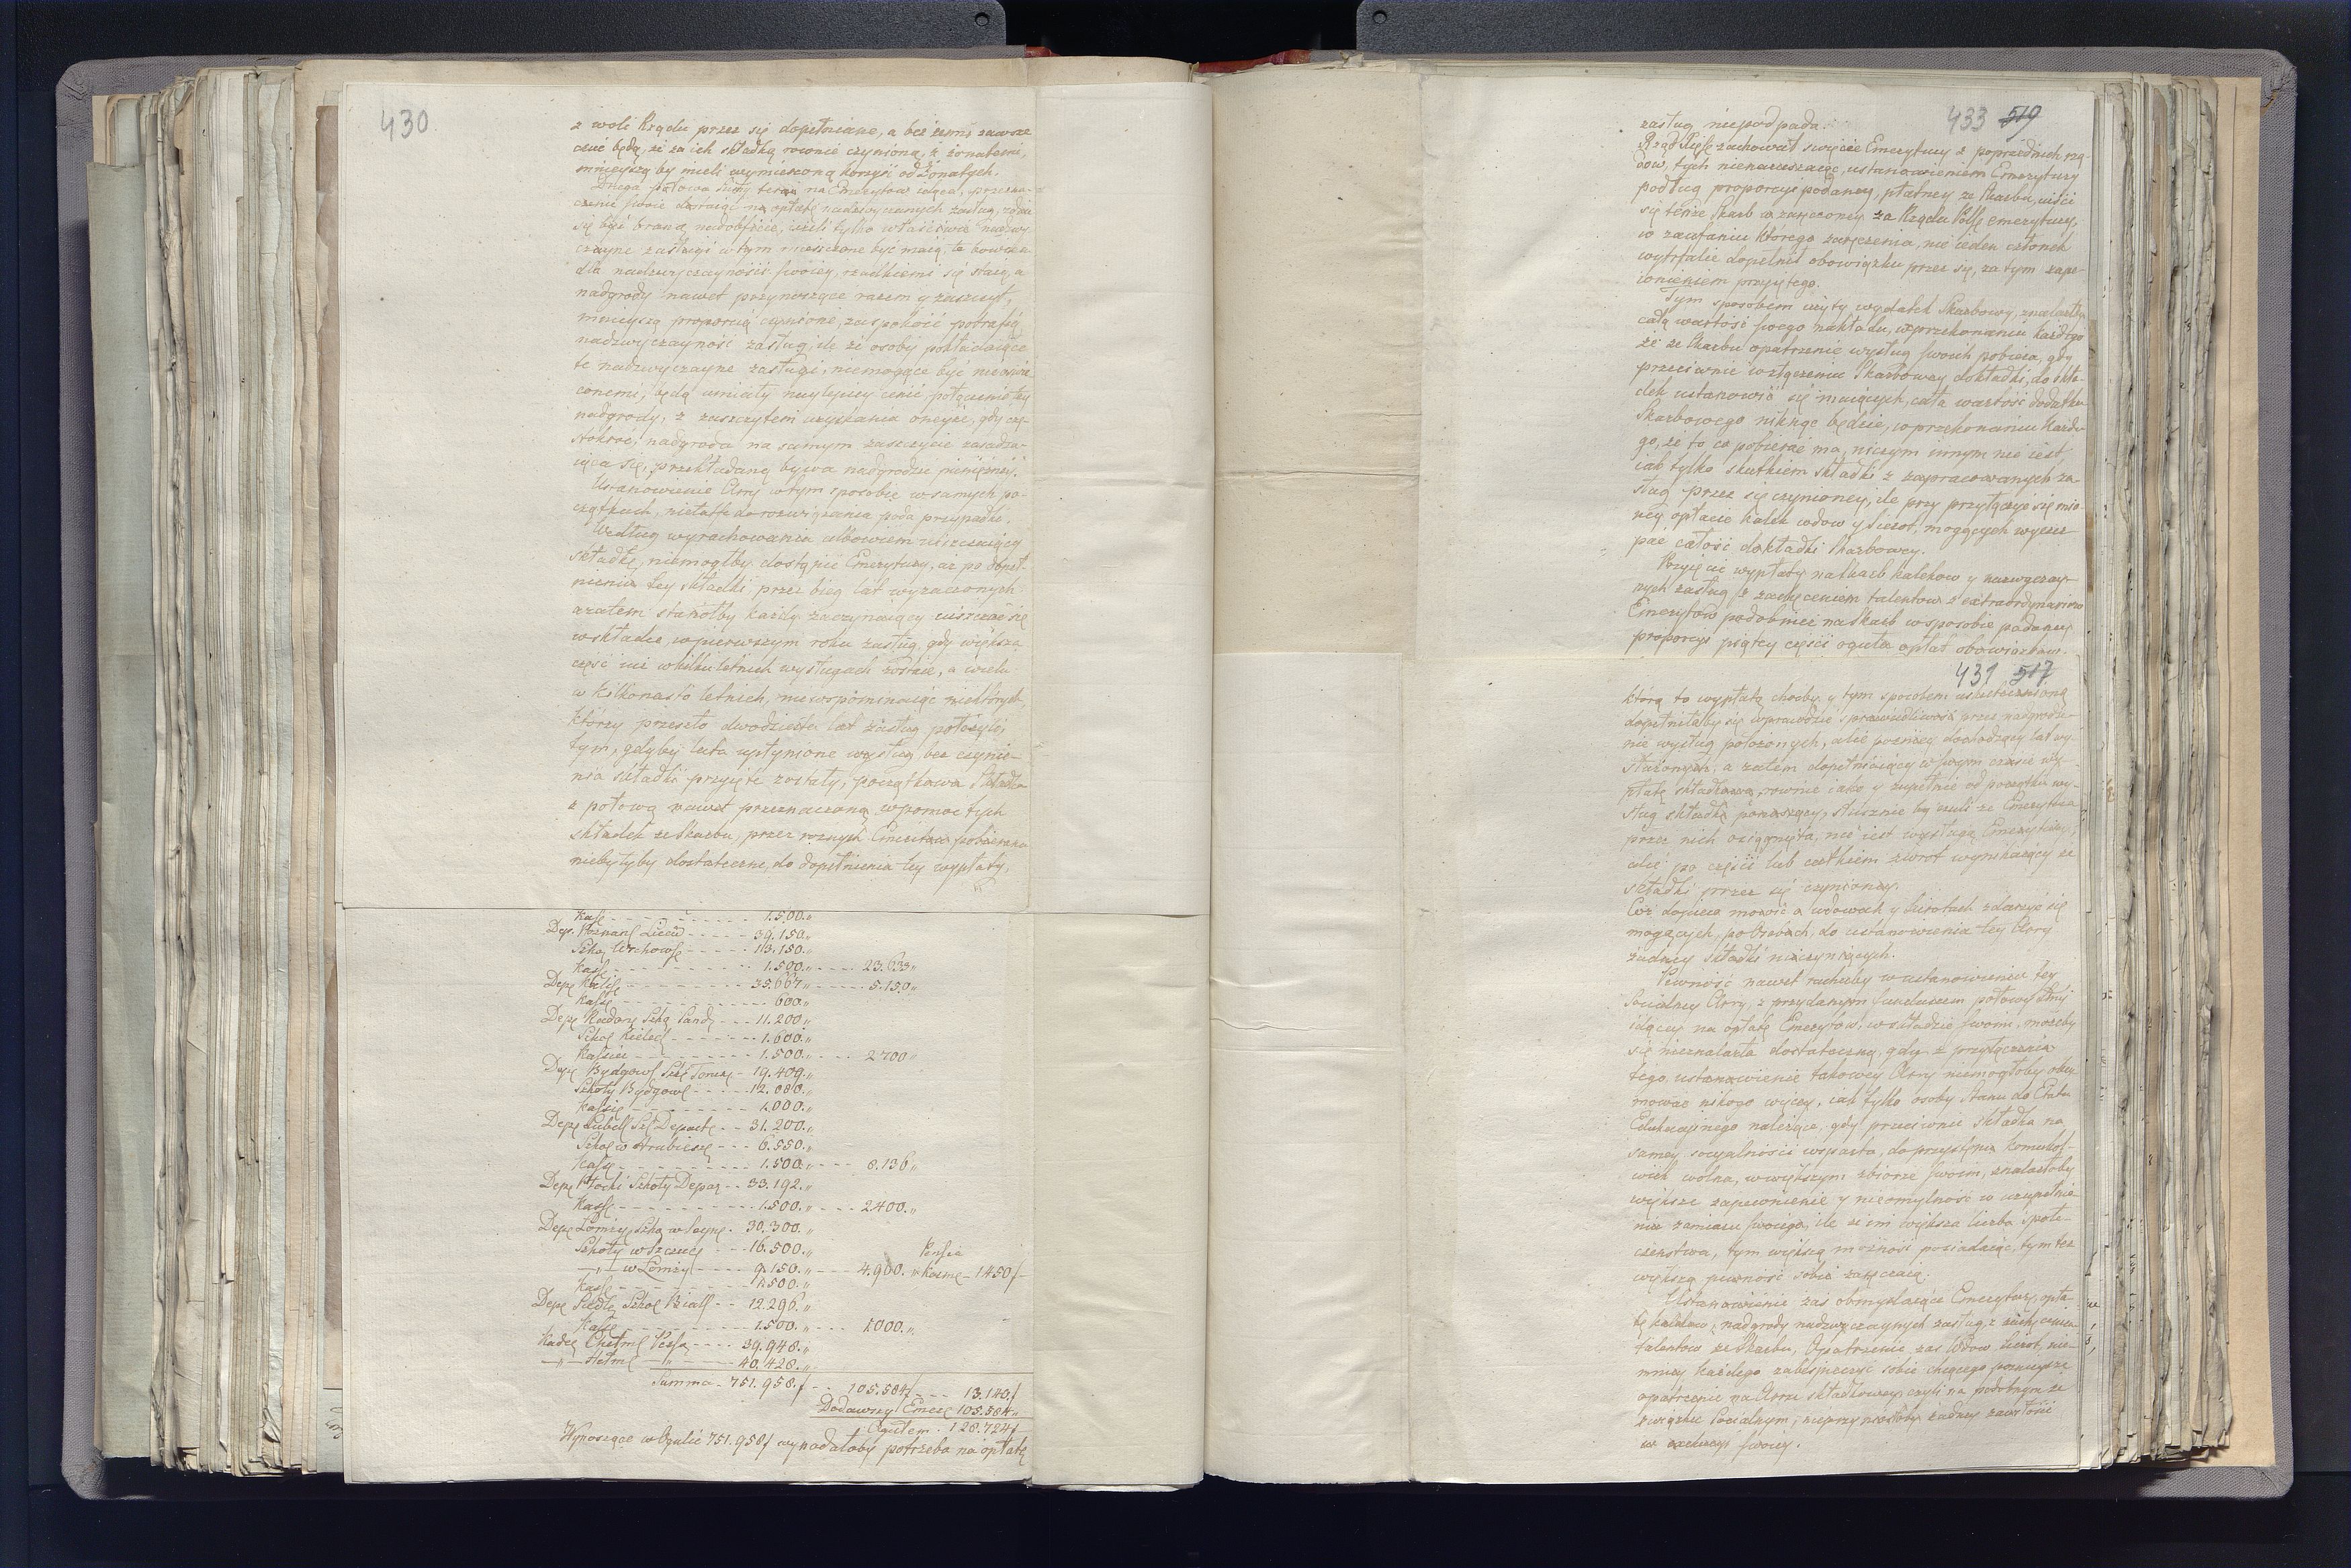 430
z woli Rządu przez się dopełniane, a bez żenni zawsze
cene będą, że za ich składką rownie czynioną, z żonatemi,
mnieyszą by mieli wymierzoną korzyść od Żonatych.
Druga połowa Summy teraz na Emerytow idąca, przezna-
czenie swoie maiąc na opłatę nadzwyczaynych zasług, zdaie
się być braną nadobficie, ieżeli tylko właściwie nadzwy
czayne zasługi w tym mieszczone być maią, te bowiem
dla nadzwyczayności swoiey, rzadkiemi się staią, a
nadgrody nawet przynoszące razem y zaszczyt,
mnieyszą proporcią czynione, zaspokoić potrafią
nadzwyczayność zasług, ile że osoby pokładaiące
te nadzwyczayne zasługi, niemogące być nieoświe
conemi, będą umiały naylepiey cenić połączenie tey
nadgrody, z zaszczytem uzyskania oneyże, gdy czę-
stokroć, nadgroda na samym zaszczycie zasadza-
iąca się, przekładaną bywa nadgrodzie pieniężney.
Ustanowienie Clony w tym sposobie w samych po-
czątkach, niełatwe do rozwiązania poda przypadki.
Według wyrachowania albowiem uiszczaiący
składkę, niemogłby dostąpić Emerytury, aż po dopeł-
nieniu tey składki przez bieg lat wyznaczonych
azatem stanołby każdy zaczynaiący uiszczać się
w składce, w pierwszym roku zasług, gdy większa
część iuż w kilku letnich wysługach zostaie, a wielu
w kilkonasto letnich, niewspominaiąc niektórych,
którzy przeszło dwadzieścia lat zasług położyli,
tym, gdyby lata upłynione wysług bez czynie-
nia składki przyięte zostały, początkowa składka
z połową nawet przeznaczoną w pomoc tych
składek ze Skarbu, przez rożnych Emerytow pobierana
niebyłyby dostateczne, do dopełnienia tey wypłaty,
Kasse - - - 1.500.,,
Dep. Poznans Liceu - - - 39.150.,,
Szko Wschows - - - 13.150.,,
Kasse - - - 1.500.,, - - - 23.633,,
Depe Kalis - - - 35.667,, - - - 5.150,,
Kasse - - - 600.,,
Depe Radoms Szko Sand - - - 11.200,,
Szkoł Kielec - - - 1.600.,,
Kassie - - - 1.500.,, - - - 2700,,
Depe Bydgows Szko Torun - 19.409.,,
Szkoły Bydgows - - - 12.080.,,
Kassie - - - 1.000.,,
Depe Lubel Szł Depart - - 31.200.,,
Szkoł w Hrubiesz - - - 6.550.,,
Kasse - - - 1.500.,, - - - 8.136,,
Depe Płocki Szkoły Depar - - 33.192.,,
Kasse - - - 1.500.,, - - - 2400.,,
Depe Łomży Szko w Seyne - 30.300.,,
Szkoły w Szczucz - - - 16.500.,, Pensie
—,,— w Łomży - - - 9.150.,, - - - 4.900.,, Kosme - 1450f
Kasse - - - 1.500.,,
Depe Siedle Szkoł Bials - - 12.296.,,
Kasse - - - 1.500.,, - - - 1000.,,
Kade Chełme Pensa - - - 39.948.,,
—,,— —,,— 40.428.,,
Summa - 751.958.f - - 105.584f - - - 13.140.f
Dodawszy Emer 105.584.,,
Ogułem. 128.724f
Wynoszące w Ogule 751.958f wynadałoby potrzeba na opłatę
433 519
zasług niepodpada.
Rząd Pięlę zachował święcie Emerytury z poprzednich rzą-
dow, tych nienaruszaiąc, ustanowieniem Emerytury
podług proporcyi podaney, płatney ze Skarbu, uiści
się tenże Skarb w zaręczoney za Rządu Pols emerytury,
w zaufaniu którego zaręczenia, nie ieden członek
wytrwale dopełnił obowiązku przez się, za tym zape-
wnieniem przyiętego.
Tym sposobem użyty wydatek Skarbowy, znalazłby
całą wartość swego nakładu, w przekonaniu każdego
że ze Skarbu opatrzenie wysług swoich pobiera, gdy
przeciwnie w złączeniu Skarbowey dokładki, do skła-
dek ustanowić się maiących, cała wartość dodatku
Skarbowego niknąć będzie, w przekonaniu każde-
go, że to co pobierać ma, niczym innym nie iest
iak tylko skutkiem składki z zapracowanych za-
sług przez się czynioney, ile przy przyłączyć się mia-
ney opłacie kalek wdow y sierot, mogących wyczer-
pać całość dokładki Skarbowey.
Przyięcie wypłaty na Skarb kalekow y nadzwyczay-
nych zasług z zachęceniem talentow z extraordynariow
Emerytow podobnież na Skarb w sposobie podaney
proporcyi piątey części ogułu opłat obowiązkow.
431 517
którą to wypłatę choćby y tym sposobem uskutecznioną
dopełniłaby się wprawdzie sprawiedliwość przez nadgrodze-
nie wysług położonych, ale pozniey dochodzący lat wy-
służonych, a zatem dopełniaiący w swym czasie wy-
płatę składkową, rownie iako y zupełnie od początku wy-
sług składkę ponoszący, słusznie by czuli że Emerytura
przez nich osiągnięta, nie iest wysługą Emeryturą,
ale po części lub całkiem zwrot wynikaiący ze
składki przez się czynioney.
Coż dopiero mowić o wdowach y sierotach zdarzyć się
mogących, po osobach, do ustanowienia tey Clony
żadney składki nieczyniących.
Pewność nawet rachuby w ustanowieniu tey
Socialney Clony, z przydanym funduszem połowy Summy
idącey na opłatę Emerytow, w składzie swoim, możeby
się nieznalazła dostateczną, gdy z przyłączenia
tego, ustanowienie takowey Clony niemogłoby obey-
mować nikogo więcey, iak tylko osoby Stanu do Etatu
Edukacyinego należące, gdy przeciwnie składka na
samey socyalności wsparta, do przyięcia komukol-
wiek wolna, w większym zbiorze swoim, znalazłaby
większe zapewnienie y nieomylność w uzupełnie-
niu zamiaru swoiego, ile że im większa liczba społe-
czeństwa, tym większą możność posiadaiąc, tym też
większą pewność sobie zaręczaią.
Ustanowienie zaś obmyślaiące Emerytury, opła-
tę kalekow, nadgrody nadzwyczaynych zasług, z zachęceniem
talentow ze Skarbu, Opatrzenie zaś Wdow, Sierot, nie-
mniey każdego zabespieczyć sobie chcącego poznieysze
opatrzenie na Clonie składkowey czyli na podobnym ze
związku Socialnym, nieprzyniosłoby żadney zawiłości
w exekucyi swoiey.